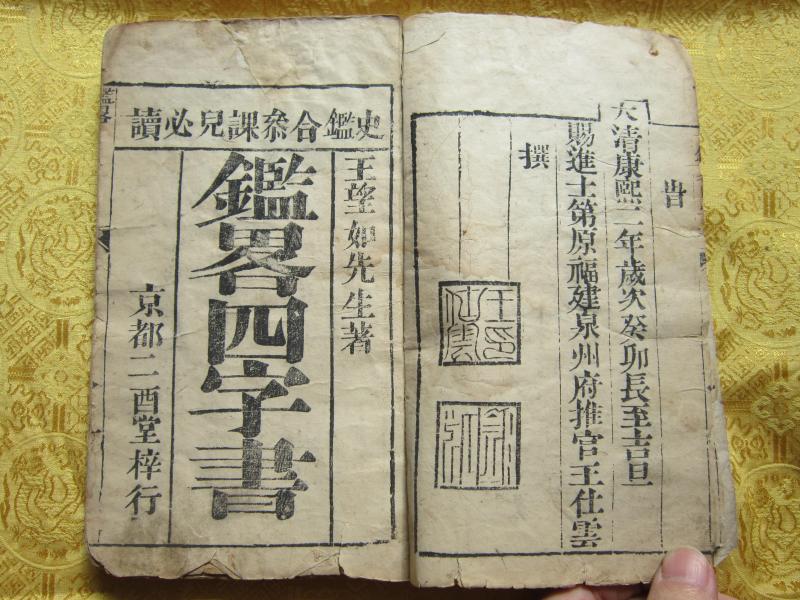 旹
大清康熙二年歲次癸卯長至吉旦
賜進士第原福建泉州府推官王仕雲
撰
王印仕雲
史鑑合叅課兒必讀
王望如先生著
鑑畧四字書
京都二酉堂梓行
鑑畧